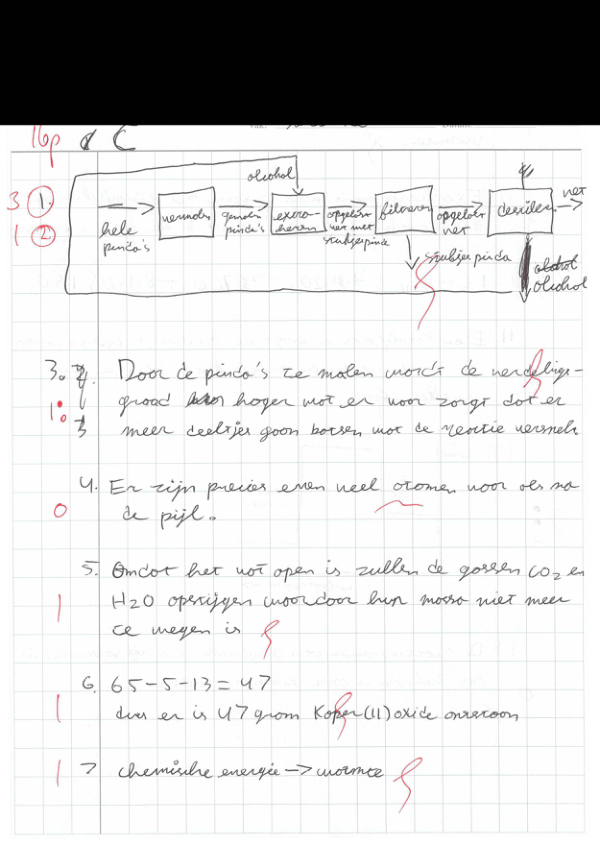 16p C
alcohol
3 1. hele pinda's gemalen pinda's opgelost vet met stukjes pinda filtreren opgelost vet vet
1 2.
stukjes pinda
alcohol
alcohol
3. Door de pinda's te malen wordt de verdelings-
1 graad hoger wat er voor zorgt dat er
meer deeltjes gaan botsen wat de reactie versnelt
4. Er zijn precies even veel atomen voor als na
0 de pijl.
5. Omdat het vat open is zullen de gassen CO2 en
1 H2O opstijgen waardoor hun massa niet meer
te wegen is
6. 65-5-13=47
1 dus er is 47 gram Koper(II)oxide ontstaan
1 7 chemische energie -> warmte